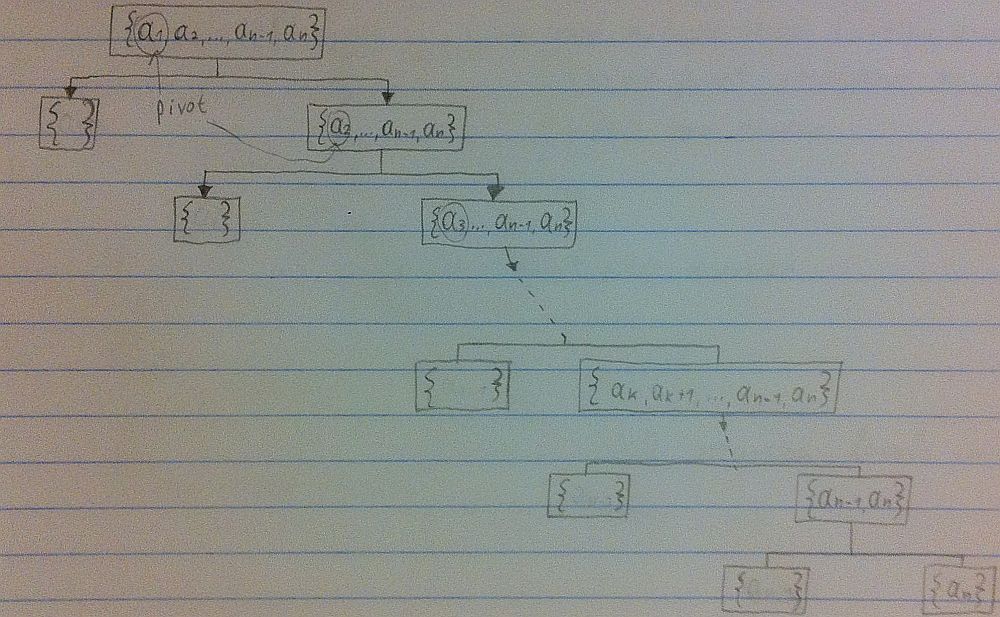 {a₁, a₂, ..., aₙ₋₁, aₙ}
pivot
{ } {a₂, ..., aₙ₋₁, aₙ}
{ } {a₃ ..., aₙ₋₁, aₙ}
{ } {aₖ, aₖ₊₁, ..., aₙ₋₁, aₙ}
{ } {aₙ₋₁, aₙ}
{ } {aₙ}